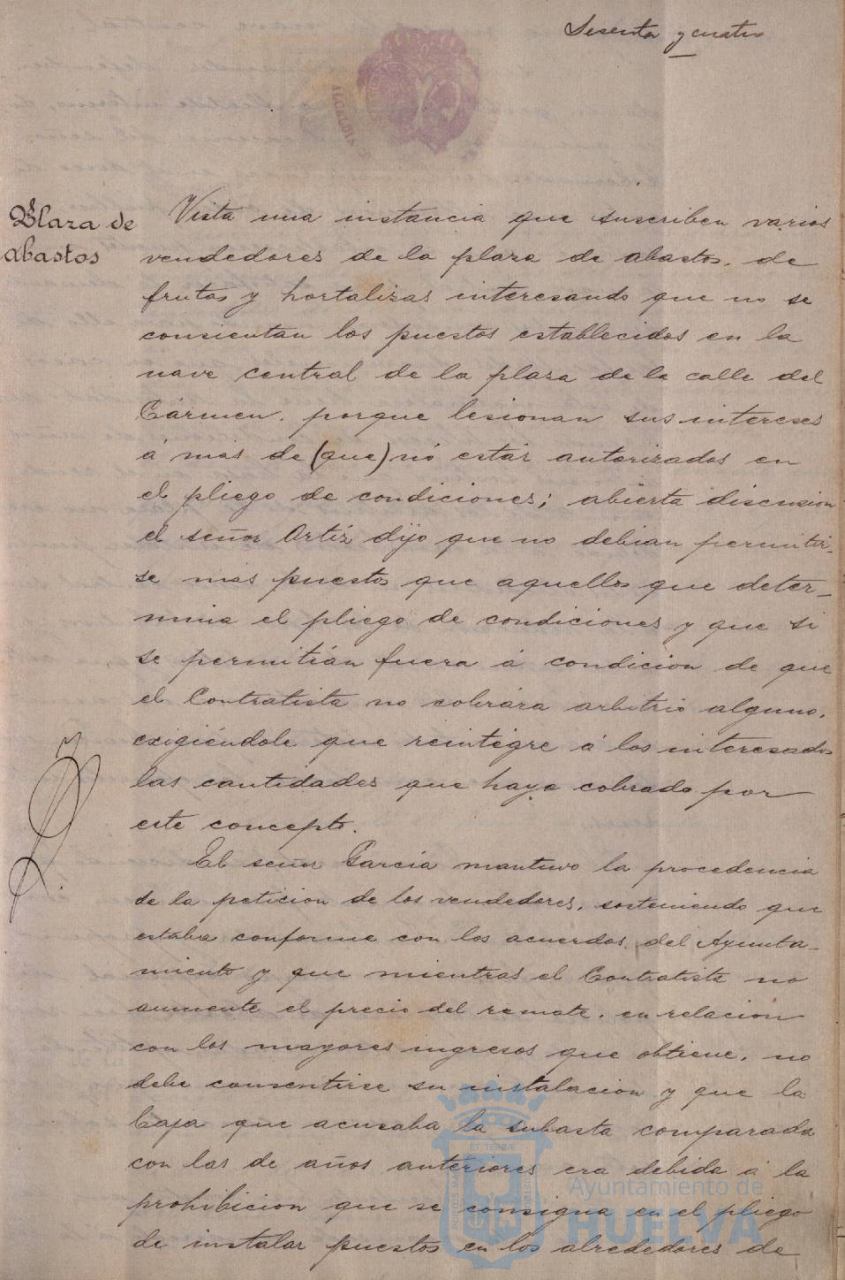 Sesenta y cuatro
ALCALDIA
Plaza de
abastos
Vista una instancia que suscriben varios
vendedores de la plaza de abastos, de
frutas y hortalizas interesando que no se
consientan los puestos establecidos en la
nave central de la plaza de la calle del
Cármen, porque lesionan sus intereses
á mas de (que) nó estar autorizados en
el pliego de condiciones; abierta discusion
el señor Ortíz dijo que no debian permitir-
se más puestos que aquellos que deter-
mina el pliego de condiciones y que si
se permitián fuera á condicion de que
el Contratista no cobrára arbitrio alguno,
exigiéndole que reintegre á los interesados
las cantidades que haya cobrado por
este concepto.
El señor García mantuvo la procedencia
de la peticion de los vendedores, sosteniendo que
estaba conforme con los acuerdos del Ayunta-
miento y que mientras el Contratista no
aumente el precio del remate, en relacion
con los mayores ingresos que obtiene, no
debe consentirse su instalacion y que la
baja que acusaba la subasta comparada
con las de años anteriores era debida á la
prohibicion que se consigna en el pliego
de instalar puestos en los alrededores de
Ayuntamiento de
HUELVA